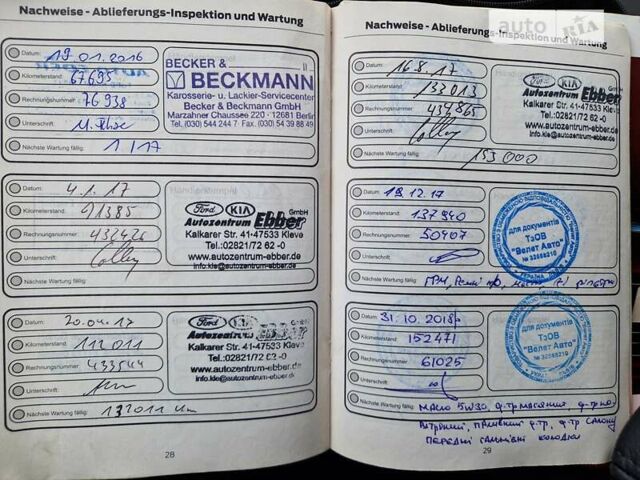 Nachweise - Ablieferungs-Inspektion und Wartung
Datum: 19.01.2016
Kilometerstand: 67695
Rechnungsnummer: 76938
Unterschrift:
Nächste Wartung fällig: 1/17
BECKER &
BECKMANN
Karosserie- u. Lackier-Servicecenter
Becker & Beckmann GmbH
Marzahner Chaussee 220 · 12681 Berlin
Tel. (030) 544 244 7 · Fax (030) 54 39 88 49
Datum: 4.1.17
Kilometerstand: 91385
Rechnungsnummer: 432426
Unterschrift:
Nächste Wartung fällig:
Ford KIA Ebber GmbH
Autozentrum
Kalkarer Str. 41·47533 Kleve
Tel.:02821/72 62 -0
www.autozentrum-ebber.de
info.kle@autozentrum-ebber.de
Datum: 20.04.17
Kilometerstand: 112011
Rechnungsnummer: 433544
Unterschrift:
Nächste Wartung fällig: 132011 km
Ford KIA
Autozentrum
Kalkarer Str. 41·47533 Kleve
Tel.:02821/72 62 -0
www.autozentrum-ebber.de
info.kle@autozentrum-ebber.de
28
Nachweise - Ablieferungs-Inspektion und Wartung
auto RIA
Datum: 16.8.17
Kilometerstand: 133013
Rechnungsnummer: 434865
Unterschrift:
Nächste Wartung fällig: 153000
Ford KIA Ebber GmbH
Autozentrum
Kalkarer Str. 41·47533 Kleve
Tel.:02821/72 62 -0
www.autozentrum-ebber.de
info.kle@autozentrum-ebber.de
Datum: 19.12.17
Kilometerstand: 137940
Rechnungsnummer: 50907
Unterschrift:
Nächste Wartung fällig: ГРМ,
для документів
ТзОВ
"Велет Авто"
Datum: 31.10.2018р
Kilometerstand: 152471
Rechnungsnummer: 61025
Unterschrift:
Nächste Wartung fällig: масло 5W30, ф-тр масляний, ф-тр по-
вітряний, паливний ф-тр, ф-тр салону
передні гальмівні колодки
для документів
ТзОВ
"Велет Авто"
29